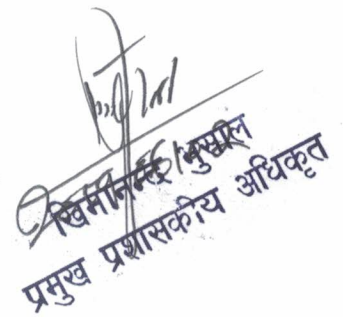 खिमानन्द भुसाल
प्रमुख प्रशासकीय अधिकृत